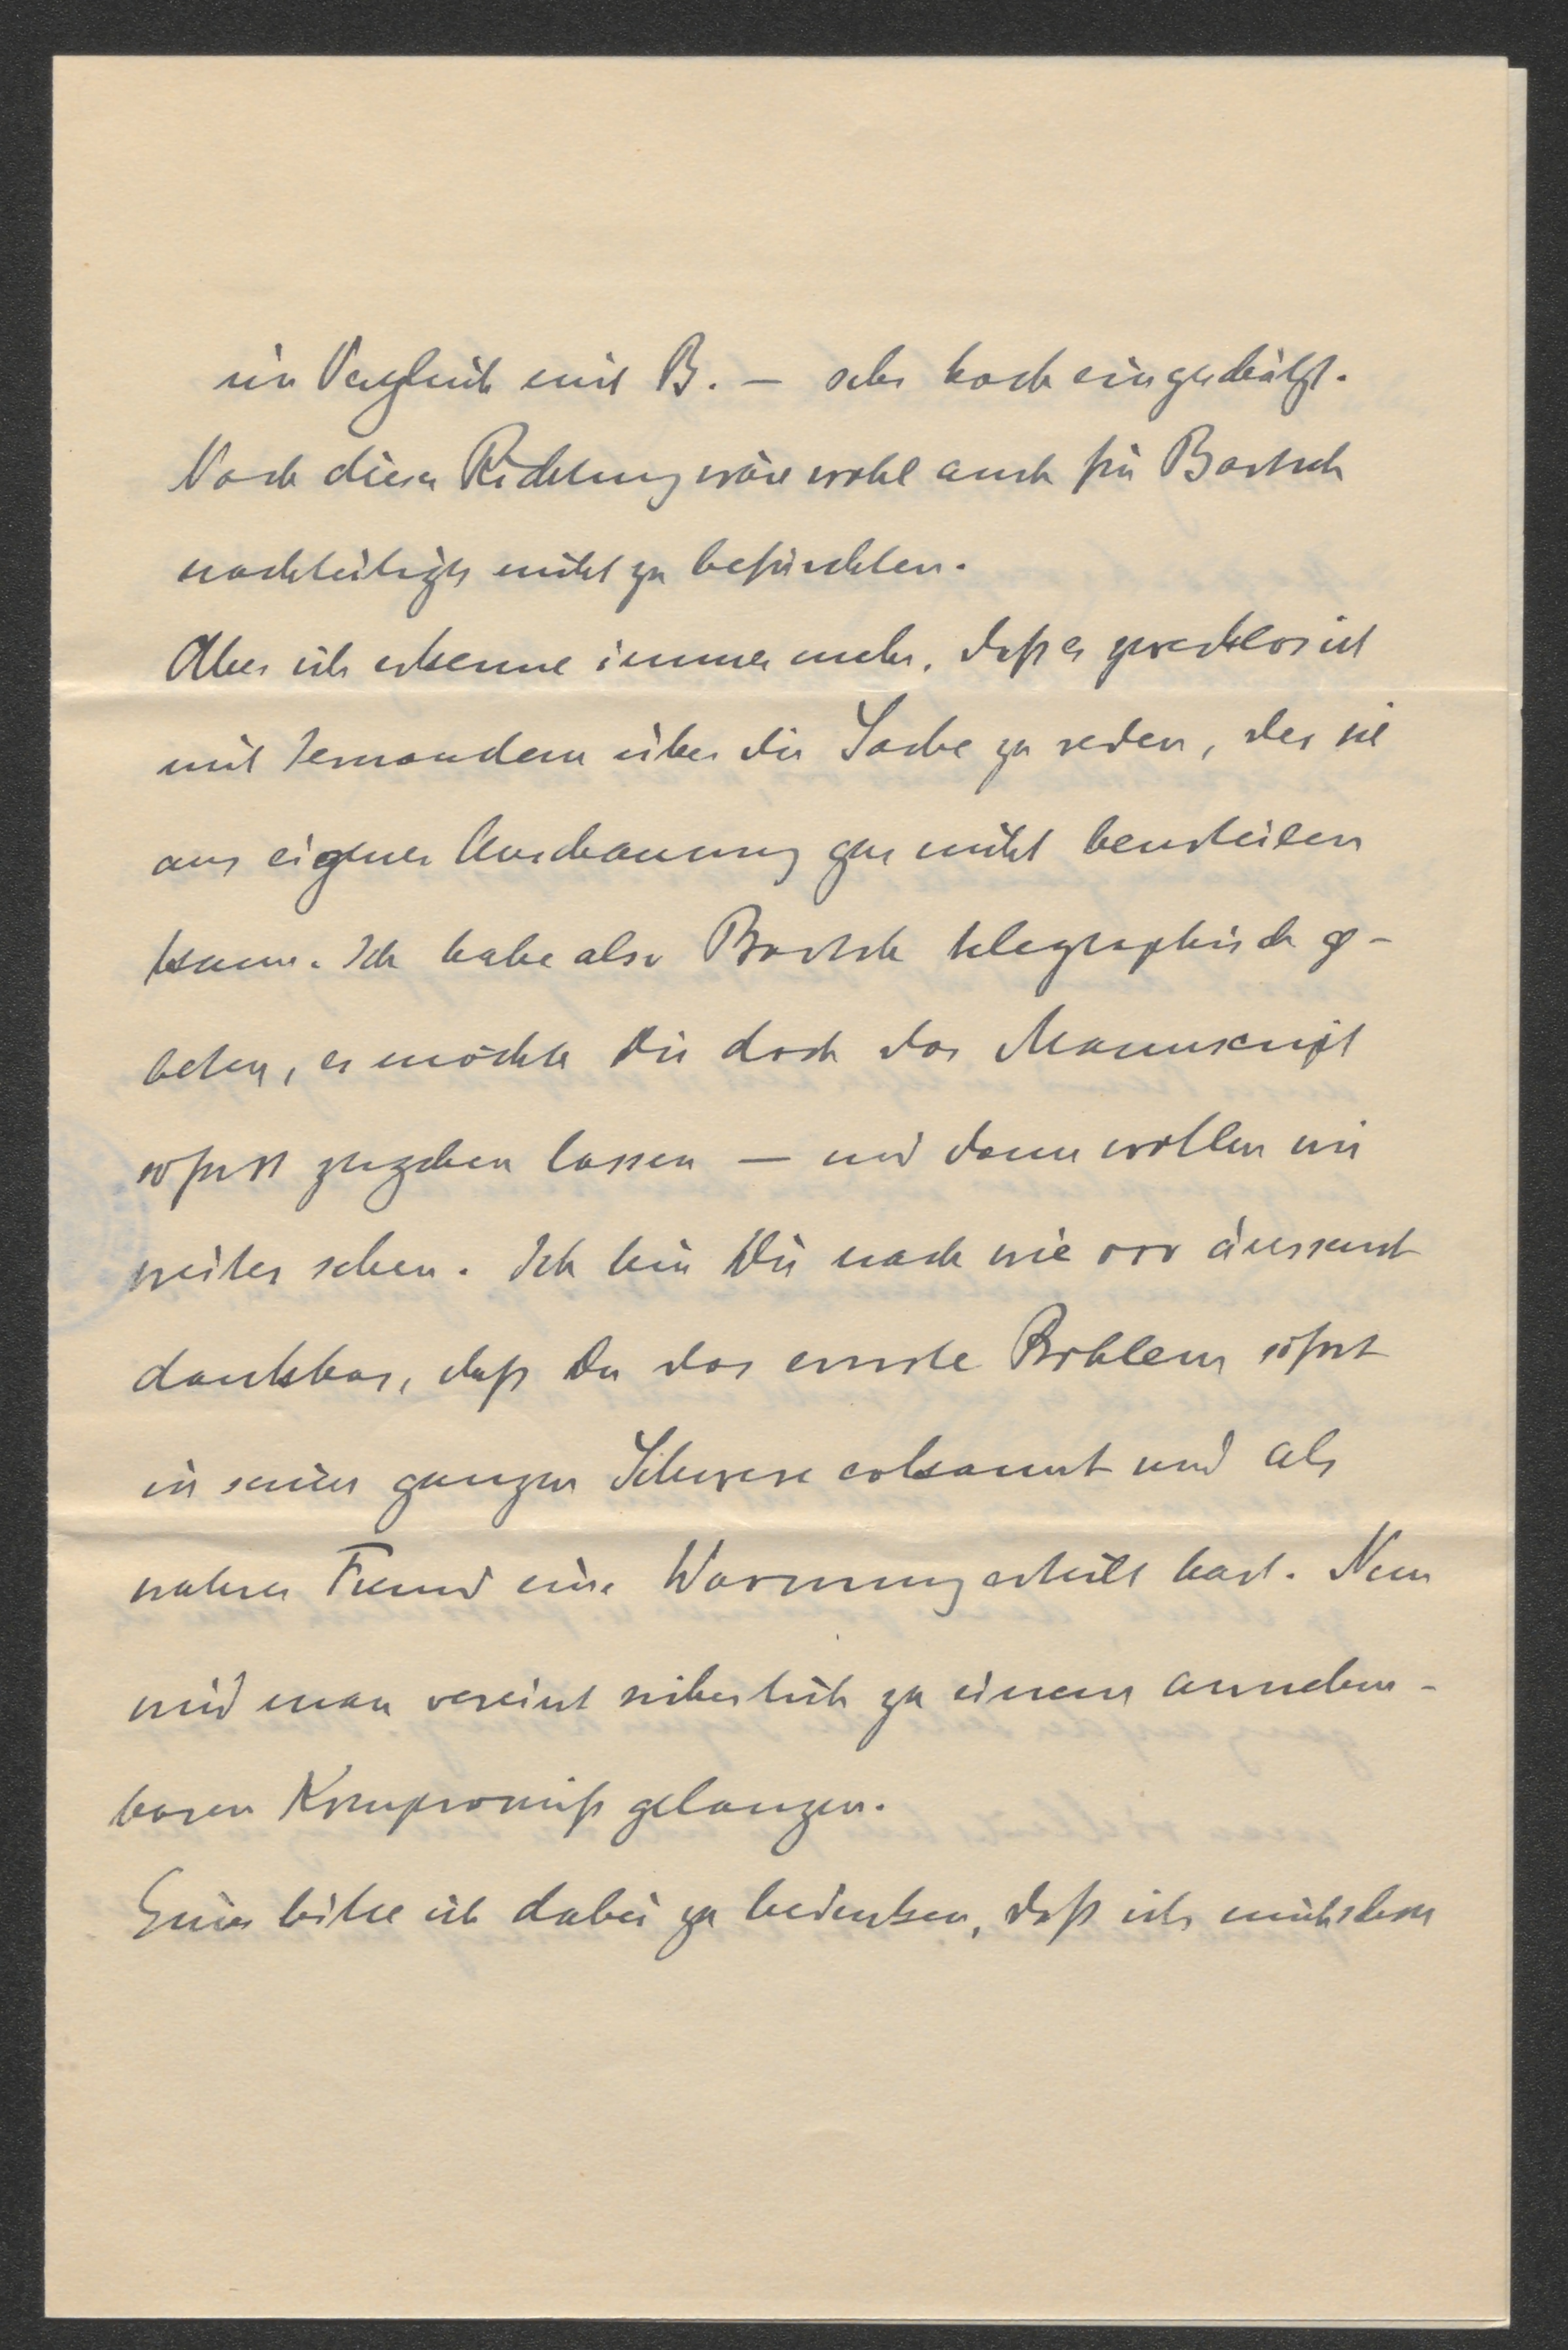 im Vergleich mit B. — sehr hoch eingeschätzt.
Nach dieser Richtung wäre wohl auch für Bartsch
nachteiliges nicht zu befürchten.
Aber ich erkenne immer mehr, daß es zwecklos ist
mit Jemandem über die Sache zu reden, der sie
aus eigener Anschauung gar nicht beurteilen
kann. Ich habe also Bartsch telegraphisch ge-
beten, er möchte Dir doch das Manuscript
sofort zugehen lassen — und dann wollen wir
weiter sehen. Ich bin Dir nach wie vor äusserst
dankbar, daß Du das ernste Problem sofort
in seiner ganzen Schwere erkannt und als
wahrer Freund eine Warnung erteilt hast. Nun
wird man vereint sicherlich zu einem annehm-
baren Kompromiß gelangen.
Eines bitte ich dabei zu bedenken, daß ich